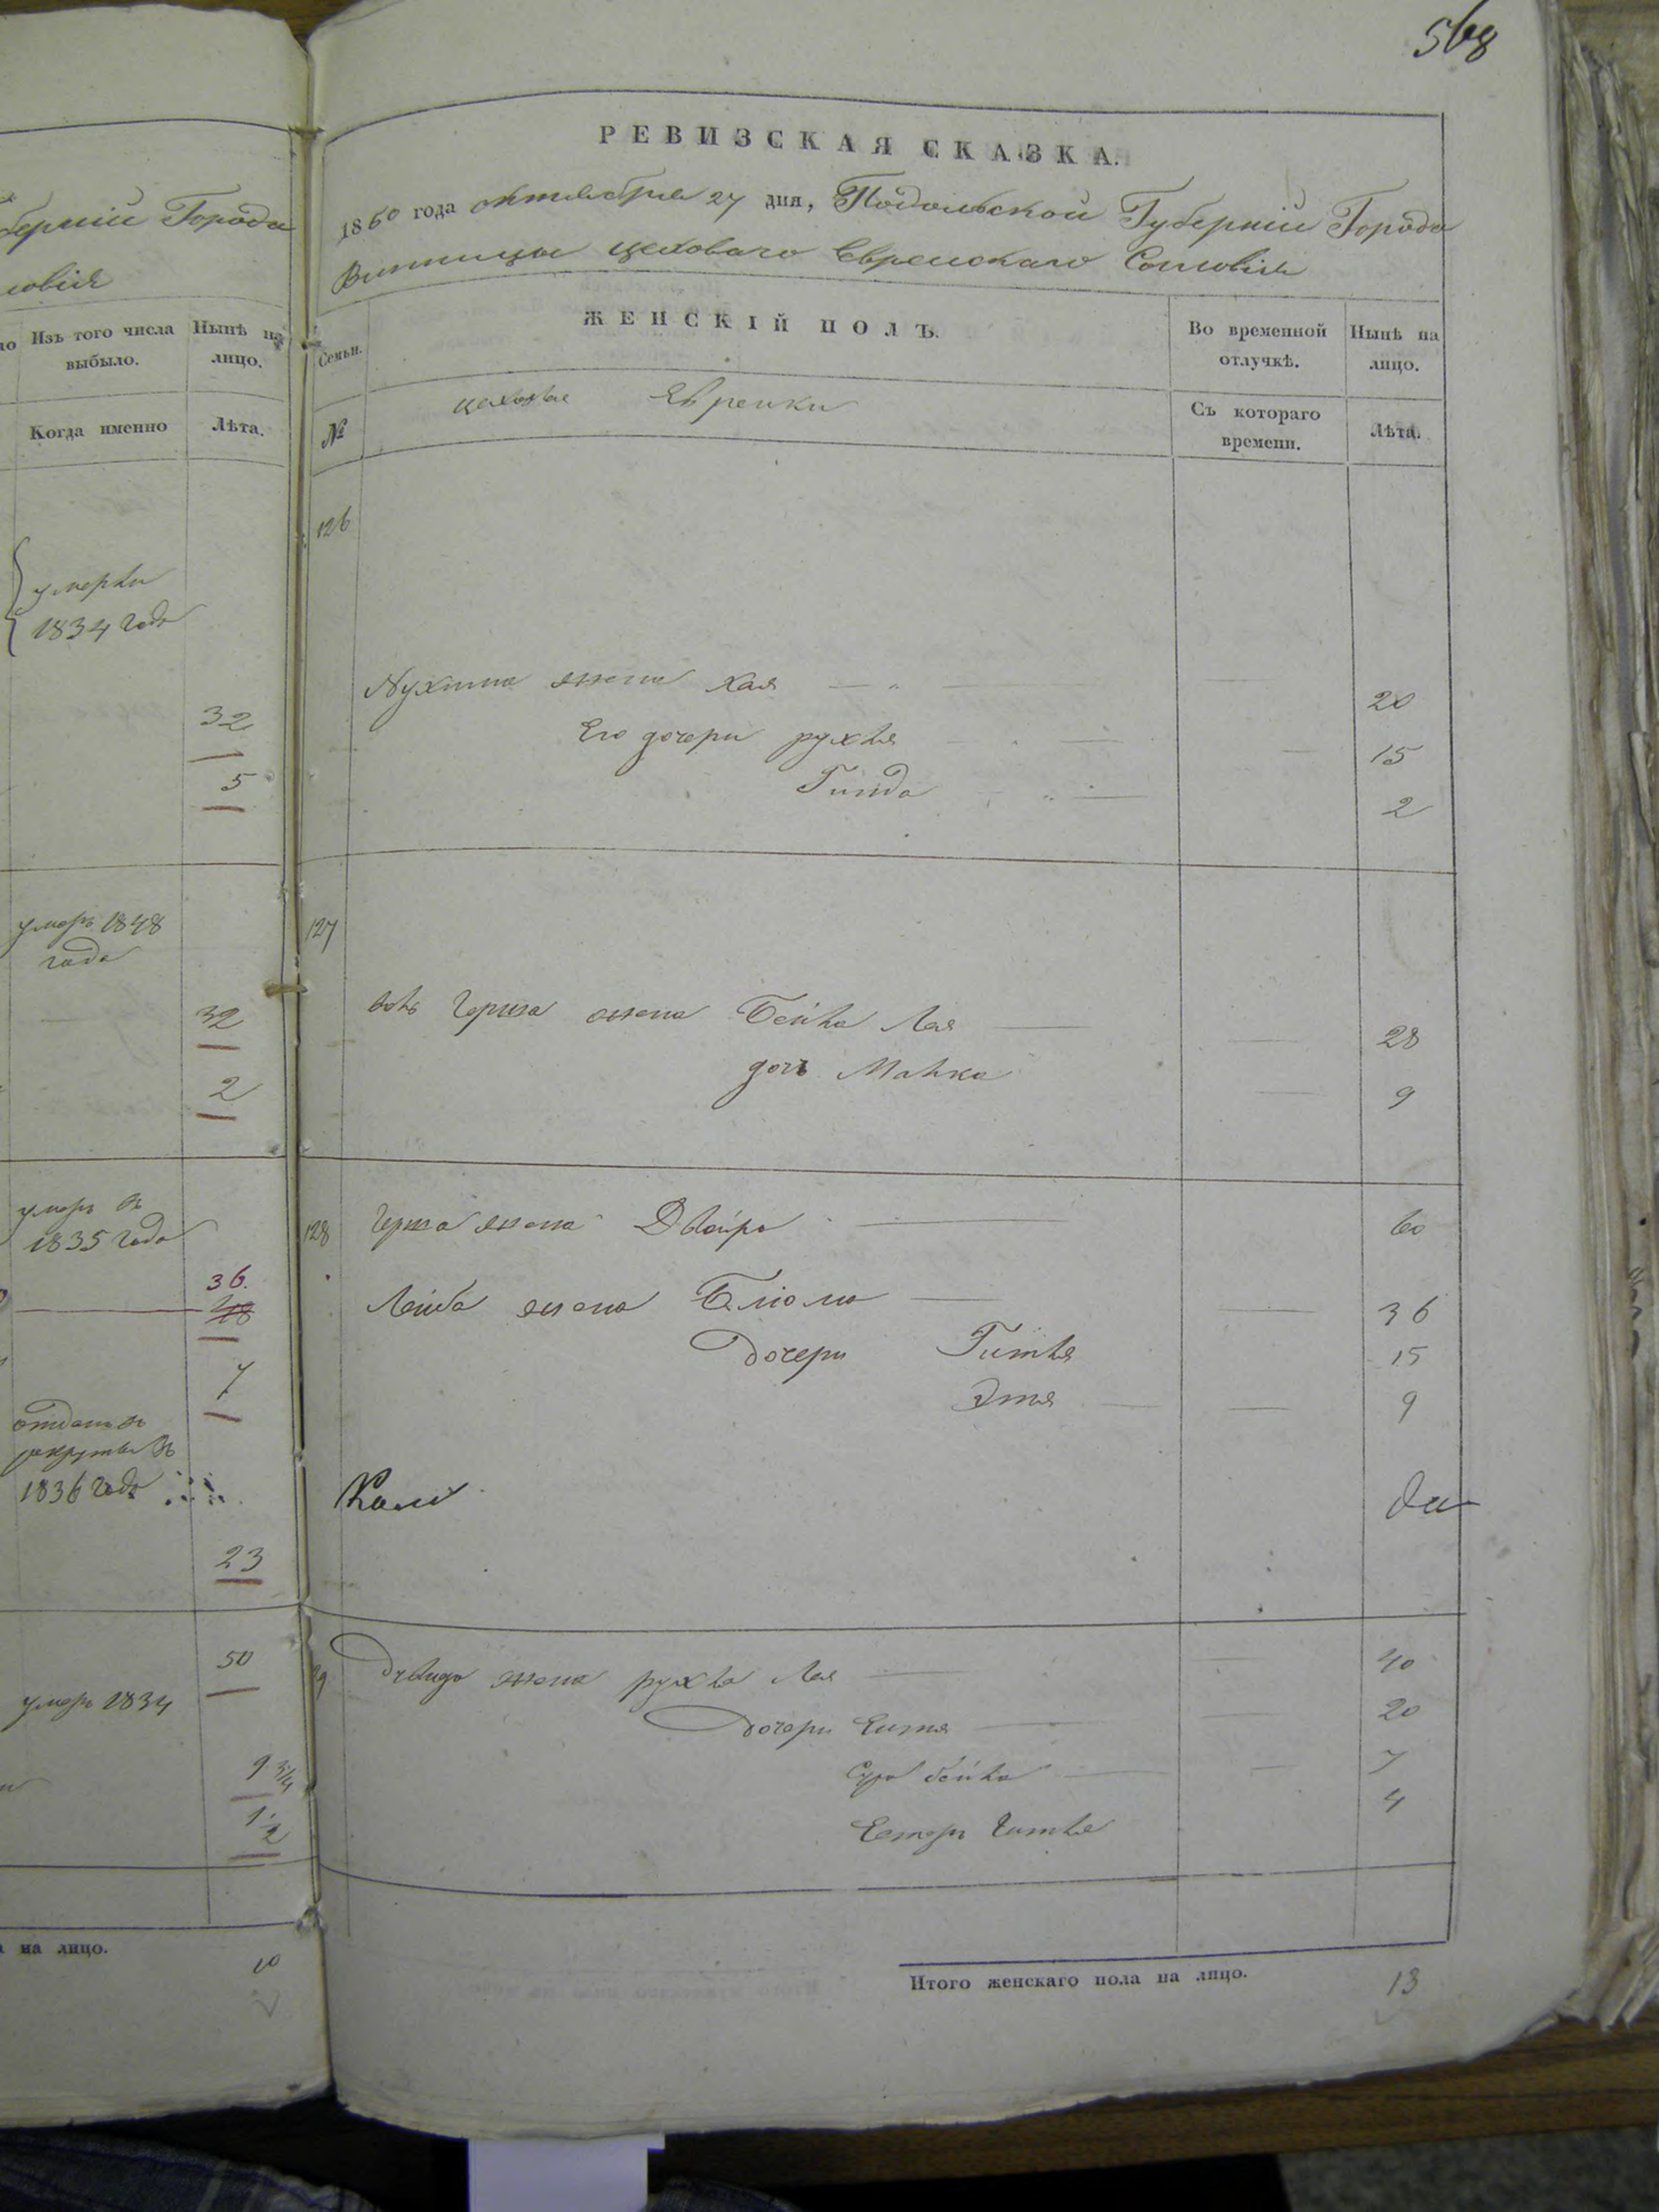 568
РЕВИЗСКАЯ СКАЗКА.
1850 года октября 27 дня, Подольской Губерніи Города
Винницы цеховаго Еврейскаго Сословія
берніи Города
ловія
Изъ того числа выбыло.
Нынѣ на лицо.
Когда именно
Лѣта.
умерли
1834 года
32
5
умеръ 1848
года
32
2
умеръ въ
1835 года
36.
48
7
отданъ въ
рекруты въ
1836 года
23
50
умеръ 1834
9 3/4
1/2
а на лицо.
10
Семьи.
ЖЕНСКІЙ ПОЛЪ.
Во временной отлучкѣ.
Нынѣ на лицо.
№
цеховые Еврейки
Съ котораго времени.
Лѣта.
126
Нухима жена Хая 20
Его дочери рухля 15
Гинда 2
127
Герша жена Бейла Лея 28
дочь Малка 9
128 Герша жена Двойра 60
Лейба жена Блюма 36
Дочери Гитля 15
Этя 9
Давида жена рухля Лея 40
Дочери Ентя 20
Сура бейла 7
Естеръ Гитля 4
Итого женскаго пола на лицо. 13